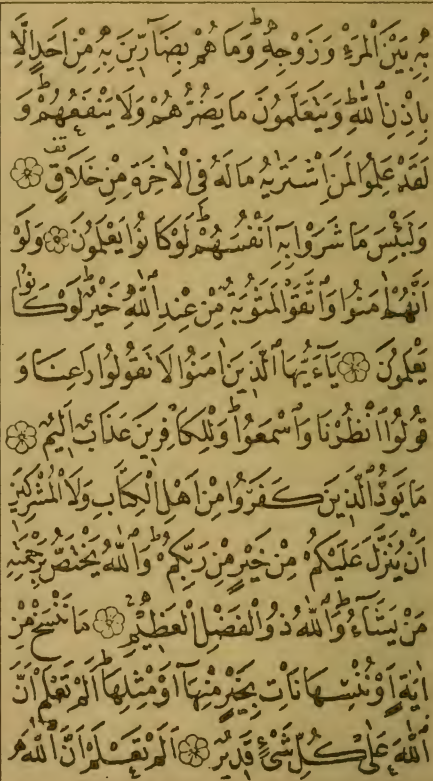 بِهٖ بَيْنَ الْمَرْءِ وَزَوْجِهٖ ۜ وَمَا هُمْ بِضَٓارّ۪ينَ بِهٖ مِنْ اَحَدٍ اِلَّا
بِاِذْنِ اللّٰهِ ۜ وَيَتَعَلَّمُونَ مَا يَضُرُّهُمْ وَلَا يَنْفَعُهُمْ ۜ وَ
لَقَدْ عَلِمُوا لَمَنِ اشْتَرٰيهُ مَا لَهُ فِي الْاٰخِرَةِ مِنْ خَلَاقٍ ۞
وَلَبِئْسَ مَا شَرَوْا بِهٖٓ اَنْفُسَهُمْ ۜ لَوْ كَانُوا يَعْلَمُونَ ۞ وَلَوْ
اَنَّهُمْ اٰمَنُوا وَاتَّقَوْا لَمَثُوبَةٌ مِنْ عِنْدِ اللّٰهِ خَيْرٌ ۜ لَوْ كَانُوا
يَعْلَمُونَ ۞ يَٓا اَيُّهَا الَّذ۪ينَ اٰمَنُوا لَا تَقُولُوا رَاعِنَا وَ
قُولُوا انْظُرْنَا وَاسْمَعُوا ۜ وَلِلْكَافِر۪ينَ عَذَابٌ اَل۪يمٌ ۞
مَا يَوَدُّ الَّذ۪ينَ كَفَرُوا مِنْ اَهْلِ الْكِتَابِ وَلَا الْمُشْرِك۪ينَ
اَنْ يُنَزَّلَ عَلَيْكُمْ مِنْ خَيْرٍ مِنْ رَبِّكُمْ ۜ وَاللّٰهُ يَخْتَصُّ بِرَحْمَتِهٖ
مَنْ يَشَٓاءُ ۜ وَاللّٰهُ ذُو الْفَضْلِ الْعَظ۪يمِ ۞ مَا نَنْسَخْ مِنْ
اٰيَةٍ اَوْ نُنْسِهَا نَاْتِ بِخَيْرٍ مِنْهَٓا اَوْ مِثْلِهَا ۜ اَلَمْ تَعْلَمْ اَنَّ
اللّٰهَ عَلٰى كُلِّ شَيْءٍ قَد۪يرٌ ۞ اَلَمْ تَعْلَمْ اَنَّ اللّٰهَ